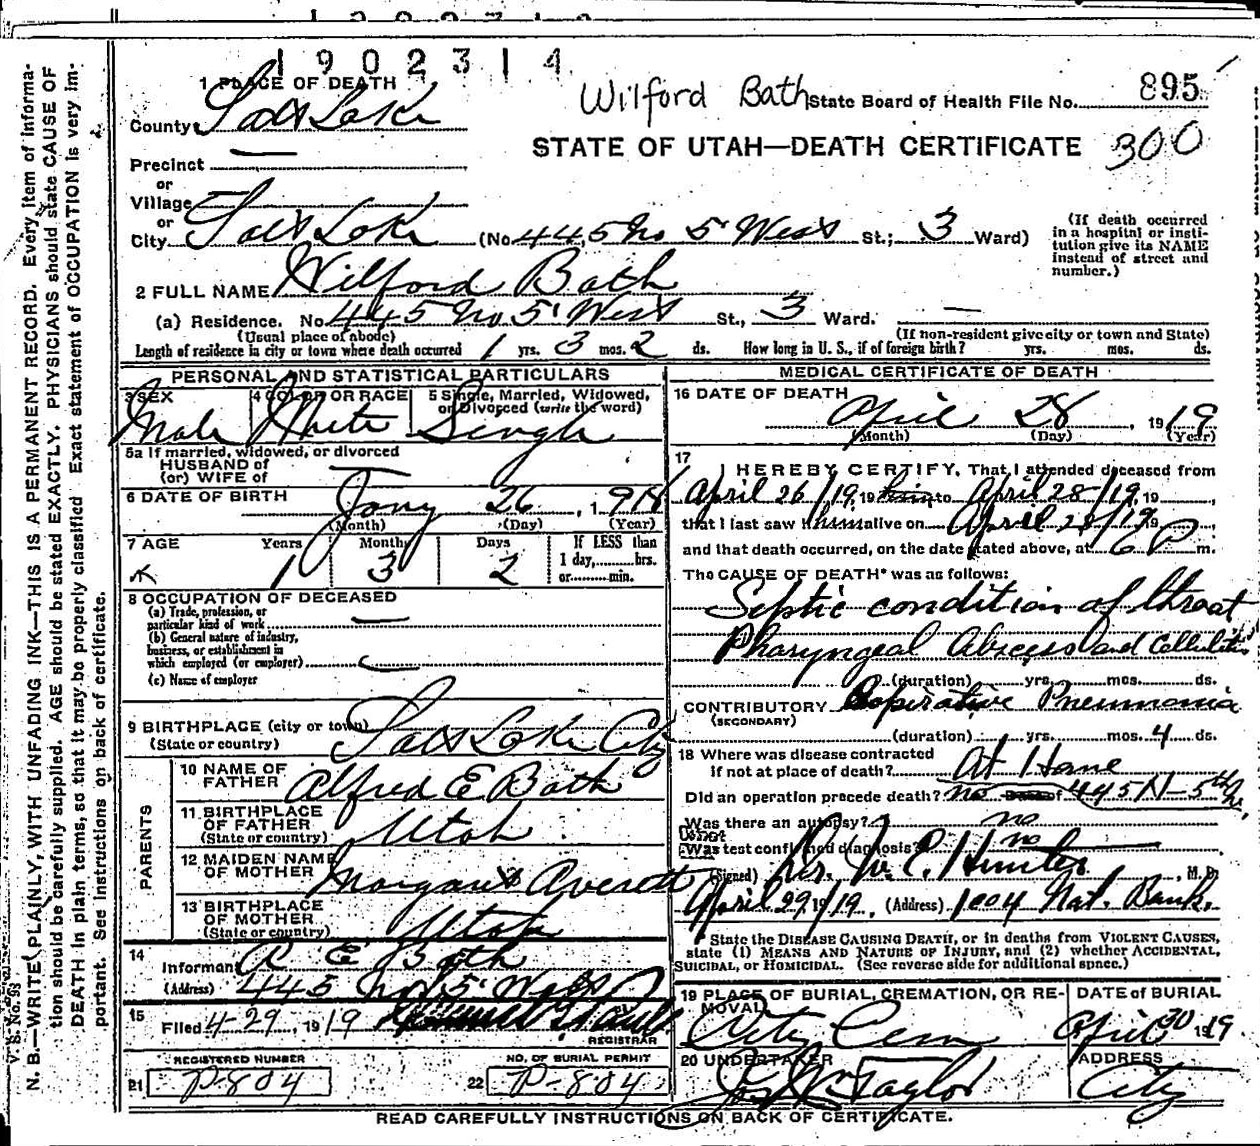 1902314
1 PLACE OF DEATH
Wilford Bath State Board of Health File No. 895
County Salt Lake
STATE OF UTAH—DEATH CERTIFICATE 300
Precinct —
or
Village
or
City Salt Lake (No. 445 No 5 West St.; 3 Ward)
(If death occurred in a hospital or institution give its NAME instead of street and number.)
2 FULL NAME Wilford Bath
(a) Residence. No. 445 No 5' West St., 3 Ward. —
(Usual place of abode) (If non-resident give city or town and State)
Length of residence in city or town where death occurred 1 yrs. 3 mos. 2 ds. How long in U. S., if of foreign birth? yrs. mos. ds.
PERSONAL AND STATISTICAL PARTICULARS
3 SEX 4 COLOR OR RACE 5 Single, Married, Widowed, or Divorced (write the word)
Male White Single
5a If married, widowed, or divorced
HUSBAND of
(or) WIFE of —
6 DATE OF BIRTH Jany 26, 1918
(Month) (Day) (Year)
7 AGE Years Months Days If LESS than
1 3 2 1 day, hrs.
or min.
8 OCCUPATION OF DECEASED
(a) Trade, profession, or
particular kind of work —
(b) General nature of industry,
business, or establishment in
which employed (or employer) —
(c) Name of employer
9 BIRTHPLACE (city or town) Salt Lake City
(State or country)
PARENTS
10 NAME OF
FATHER Alfred E Bath
11 BIRTHPLACE
OF FATHER Utah
(State or country)
12 MAIDEN NAME
OF MOTHER Margaret Averett
13 BIRTHPLACE
OF MOTHER Utah
(State or country)
14
Informant A E Bath
(Address) 445 No 5' West
15
Filed 4-29, 1919
REGISTRAR
REGISTERED NUMBER NO. OF BURIAL PERMIT
21 P-804 22 P-804
MEDICAL CERTIFICATE OF DEATH
16 DATE OF DEATH
April 28, 1919
(Month) (Day) (Year)
17
I HEREBY CERTIFY, That I attended deceased from
April 26/19, 19 to April 28/19, 19,
that I last saw him alive on April 28/19, 19,
and that death occurred, on the date stated above, at 6 P m.
The CAUSE OF DEATH* was as follows:
Septic condition of throat
Pharyngeal Abscess and Cellulitis
(duration) yrs. mos. ds.
CONTRIBUTORY Pneumonia
(SECONDARY)
(duration) yrs. mos. 4 ds.
18 Where was disease contracted
if not at place of death? At Home
Did an operation precede death? no of 445 N-5th W.
Was there an autopsy? no
Was test confirmed diagnosis? no
(Signed) Dr. W. E. Hunter, M. D.
April 29, 1919, (Address) 1004 Nat. Bank.
* State the DISEASE CAUSING DEATH, or in deaths from VIOLENT CAUSES,
state (1) MEANS AND NATURE OF INJURY, and (2) whether ACCIDENTAL,
SUICIDAL, or HOMICIDAL. (See reverse side for additional space.)
19 PLACE OF BURIAL, CREMATION, OR REMOVAL DATE of BURIAL
City Cem April 30 1919
20 UNDERTAKER ADDRESS
Jos Wm Taylor City
READ CAREFULLY INSTRUCTIONS ON BACK OF CERTIFICATE.
N. B.—WRITE PLAINLY, WITH UNFADING INK—THIS IS A PERMANENT RECORD. Every item of informa-
tion should be carefully supplied. AGE should be stated EXACTLY. PHYSICIANS should state CAUSE OF
DEATH in plain terms, so that it may be properly classified. Exact statement of OCCUPATION is very im-
portant. See instructions on back of certificate.